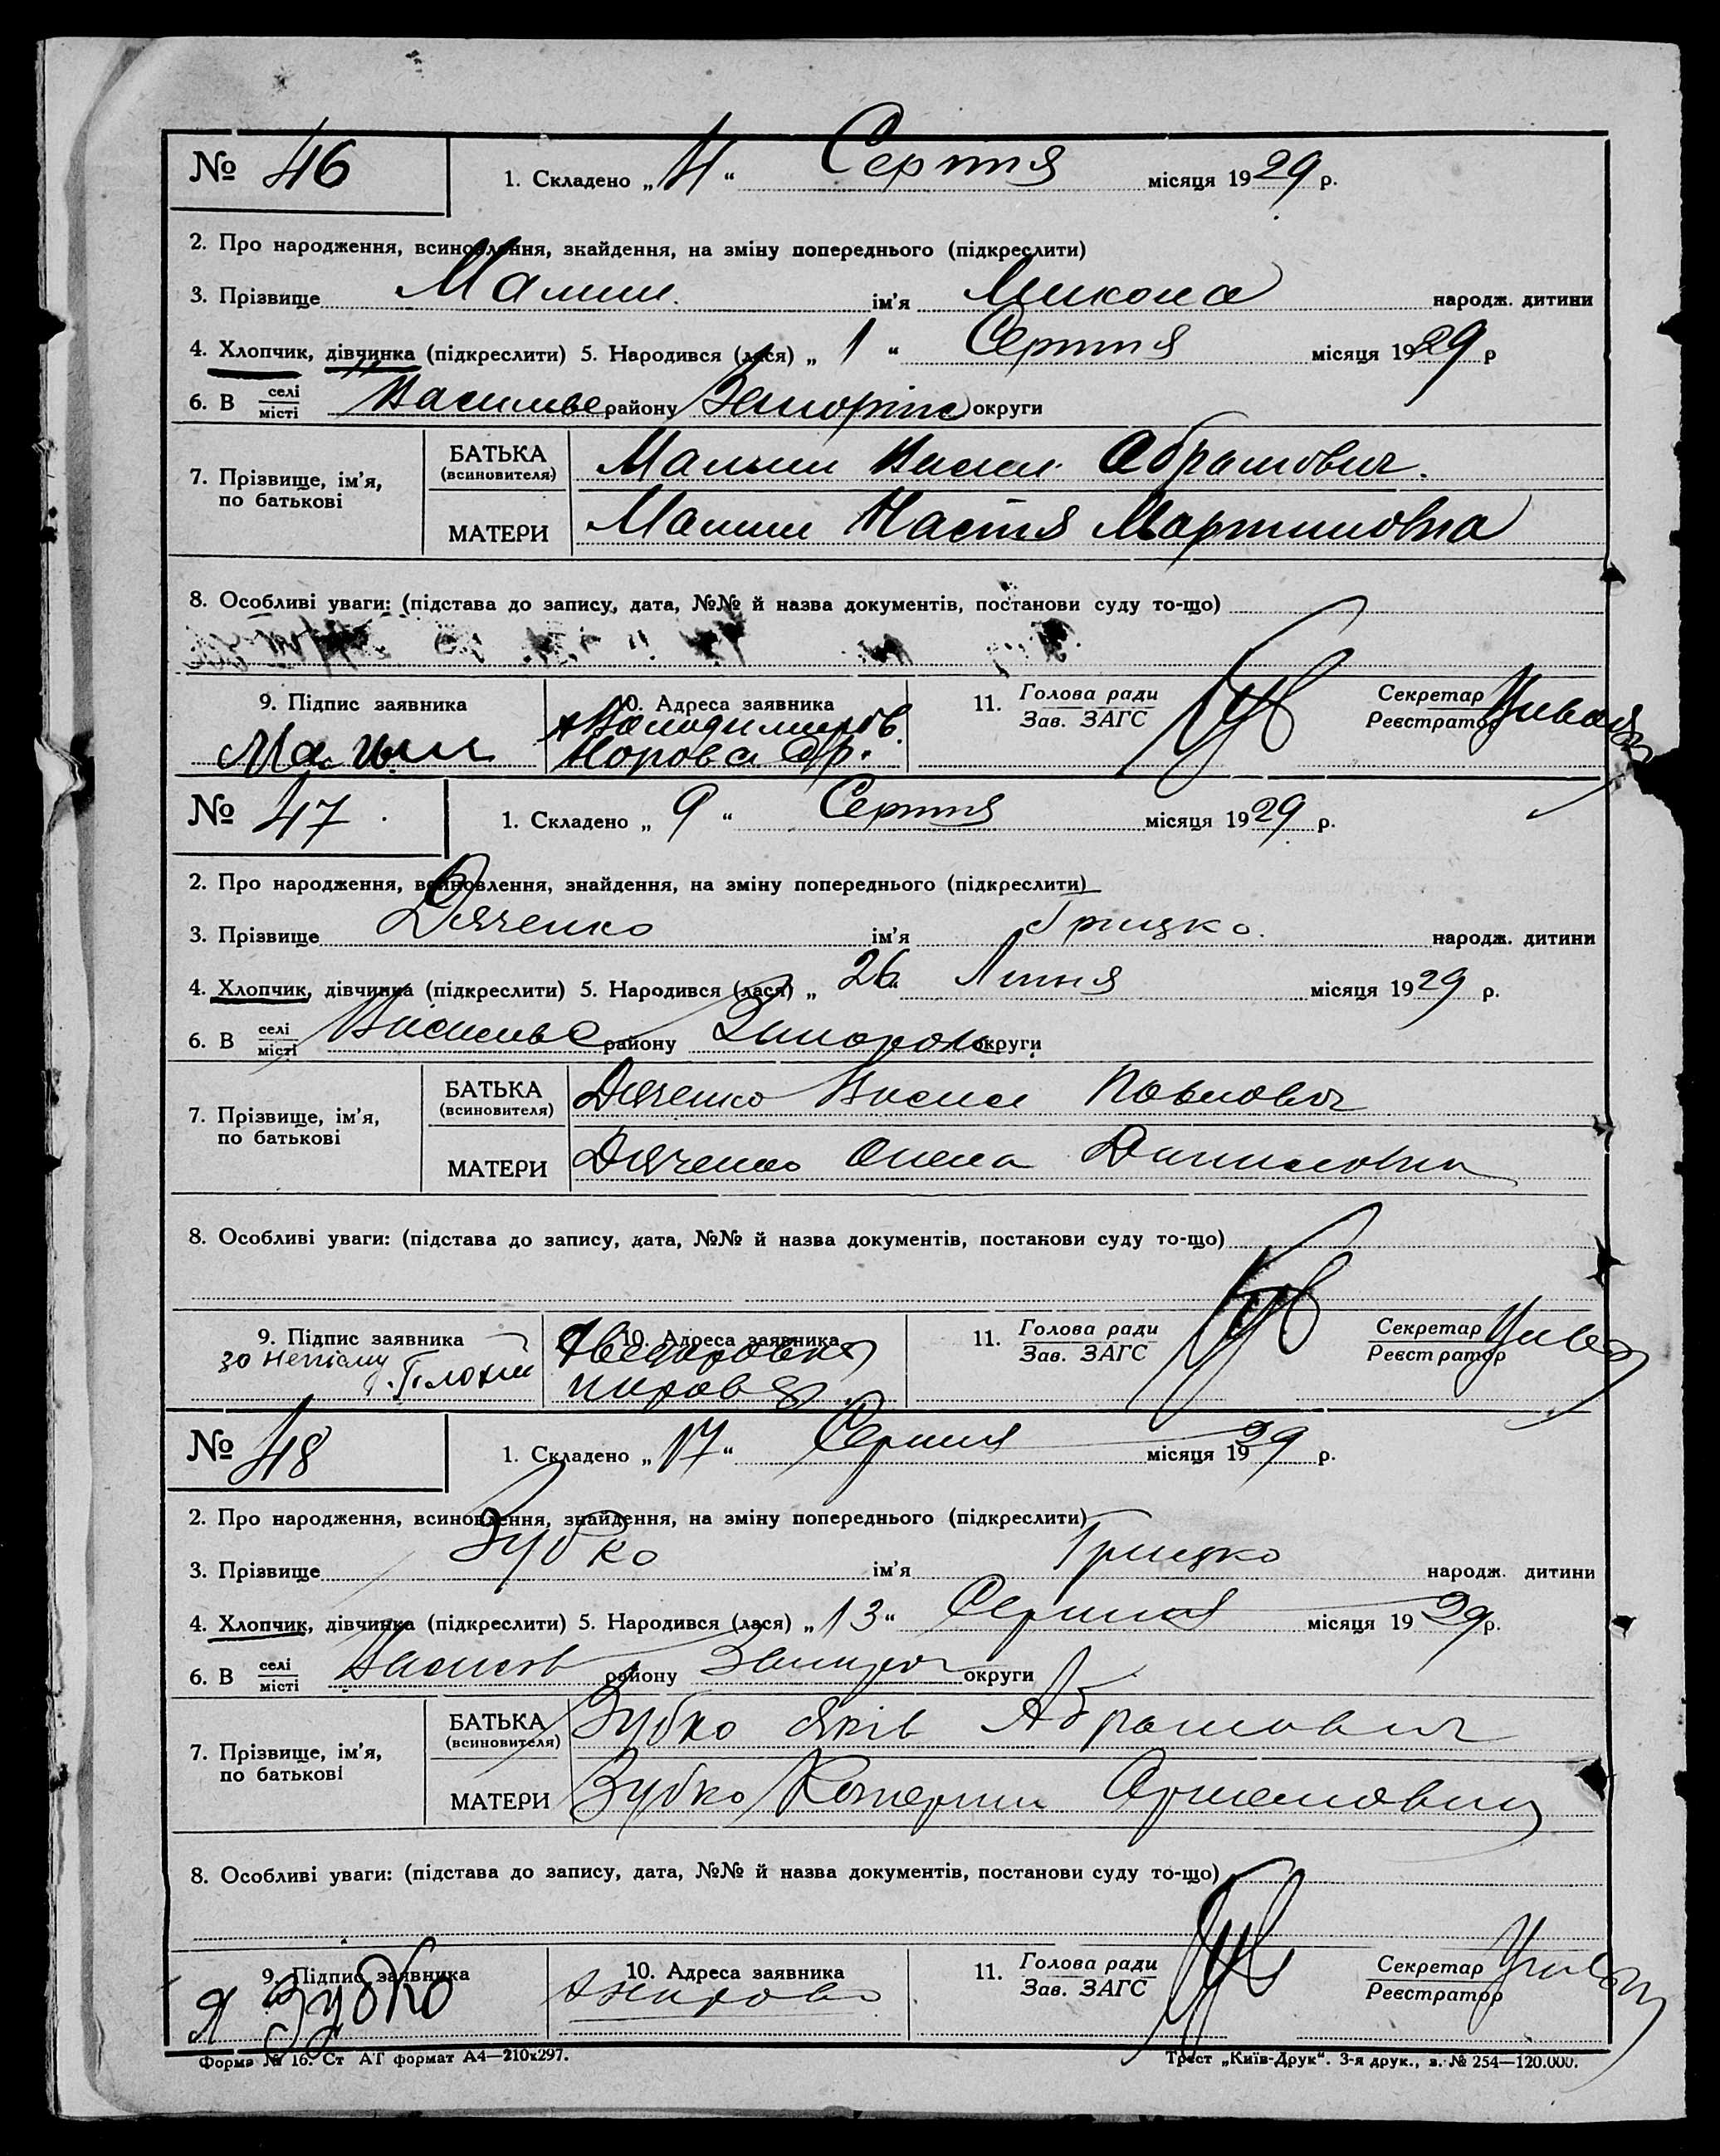 № 46 1. Складено „4“ Серпня місяця 1929 р.
2. Про народження, всиновлення, знайдення, на зміну попереднього (підкреслити)
3. Прізвище Малиш ім'я Микола народж. дитини
4. Хлопчик, дівчинка (підкреслити) 5. Народився (лася) „1“ Серпня місяця 1929 р
6. В селі місті району округи
7. Прізвище, ім'я, по батькові
БАТЬКА (всиновителя) Малиш Абрамович.
МАТЕРИ Малиш Настя Мартиновна
8. Особливі уваги: (підстава до запису, дата, №№ й назва документів, постанови суду то-що)
9. Підпис заявника 10. Адреса заявника 11. Голова ради Зав. ЗАГС Секретар Реєстратор
Малиш
№ 47 1. Складено „9“ Серпня місяця 1929 р.
2. Про народження, всиновлення, знайдення, на зміну попереднього (підкреслити)
3. Прізвище Дяченко ім'я Грицко. народж. дитини
4. Хлопчик, дівчинка (підкреслити) 5. Народився (лася) „26 Липня місяця 1929 р.
6. В селі місті району округи
7. Прізвище, ім'я, по батькові
БАТЬКА (всиновителя) Дяченко Павлович
МАТЕРИ Дяченко Олена Даниловна
8. Особливі уваги: (підстава до запису, дата, №№ й назва документів, постанови суду то-що)
9. Підпис заявника 10. Адреса заявника 11. Голова ради Зав. ЗАГС Секретар Реєстратор
№ 48 1. Складено „17“ Серпня місяця 1929 р.
2. Про народження, всиновлення, знайдення, на зміну попереднього (підкреслити)
3. Прізвище Зубко ім'я Грицко народж. дитини
4. Хлопчик, дівчинка (підкреслити) 5. Народився (лася) „13“ Серпня місяця 1929 р.
6. В селі місті району округи
7. Прізвище, ім'я, по батькові
БАТЬКА (всиновителя) Зубко Яків Абрамович
МАТЕРИ Зубко Катерина
8. Особливі уваги: (підстава до запису, дата, №№ й назва документів, постанови суду то-що)
9. Підпис заявника 10. Адреса заявника 11. Голова ради Зав. ЗАГС Секретар Реєстратор
Я Зубко
Форма № 16. Ст АТ формат А4—210х297. Трест „Київ-Друк“. 3-я друк., з. № 254—120.000.